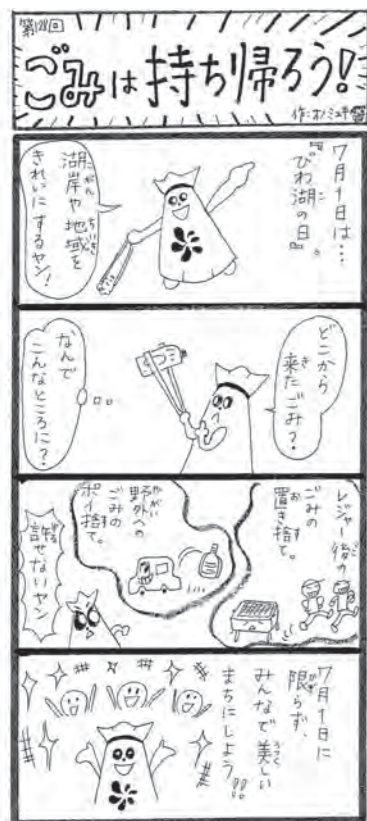 ごみは持ち帰ろう!
7月1日は…
『びわ湖の日』。
湖岸や地域を
きれいにするヤン!
どこから
来たごみ?
なんで
こんなところに?
レジャー後の
ごみの
置き捨て。
野外への
ごみの
ポイ捨て。
許せないヤン
7月1日に
限らず、
みんなで美しい
まちにしよう!!